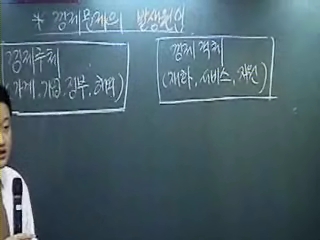 * 경제문제의 발생원인
경제주체
(가계, 기업, 정부, 해외)
경제객체
(재화, 서비스, 자원)